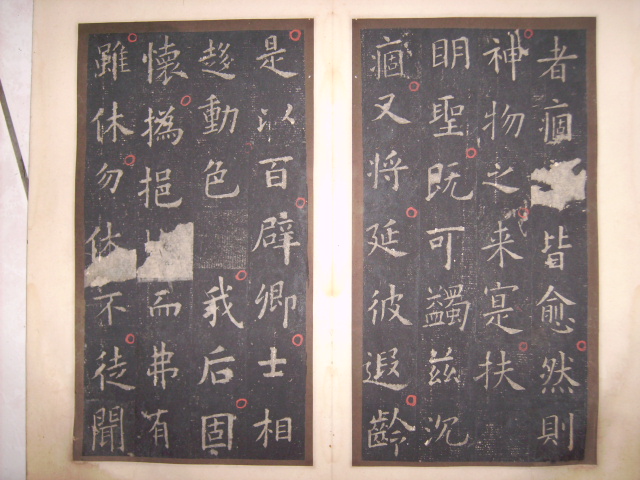 者痼皆愈然則
神物之来寔扶
眀聖既可蠲兹沉
痼又将延彼遐齡
是以百辟卿士相
趍動色我后固
懷撝挹而弗有
雖休勿休不徒聞